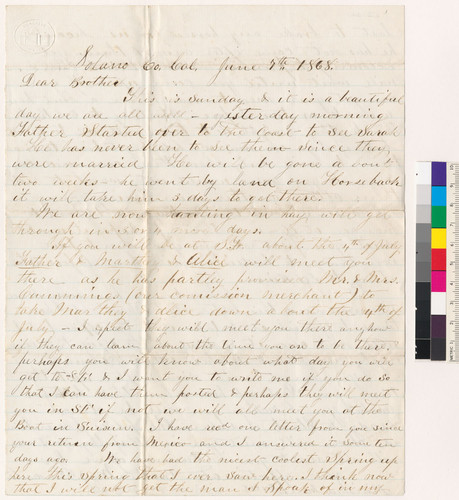 Solano Co. Cal. June 7th 1868.
Dear Brother
This is Sunday & it is a beautiful
day we are all well – yesterday morning
Father Started over to the Coast to See Sarah
He has never been to See them Since they
were married He will be gone a bout
two weeks – he went by land on Horseback
it will take him 3 days to get there.
We are now hauling in hay, will get
through in 3 or 4 more days.
If you will be at S.F. about the 4th of July
Father & Martha & Alice will meet you
there as he has partley promised Mr. & Mrs.
Cummings (our comission merchant) to
take Marthey & Alice down about the 4th of
July – I expect they will meet you there anyhow
if they can learn about the time you are to be there,
perhaps you will know about what day you will
get to S.F. & I want you to write me if you do So
that I can have them posted & perhaps they will meet
you in S.F. if not we will all meet you at the
Boat in Suisun. I have recd one letter from you since
your return from Mexico and I answered it Some ten
days ago. We have had the nicest coolest Spring up
here this Spring that I ever Saw here. I think now
that I will not get the man I Spoke of in my